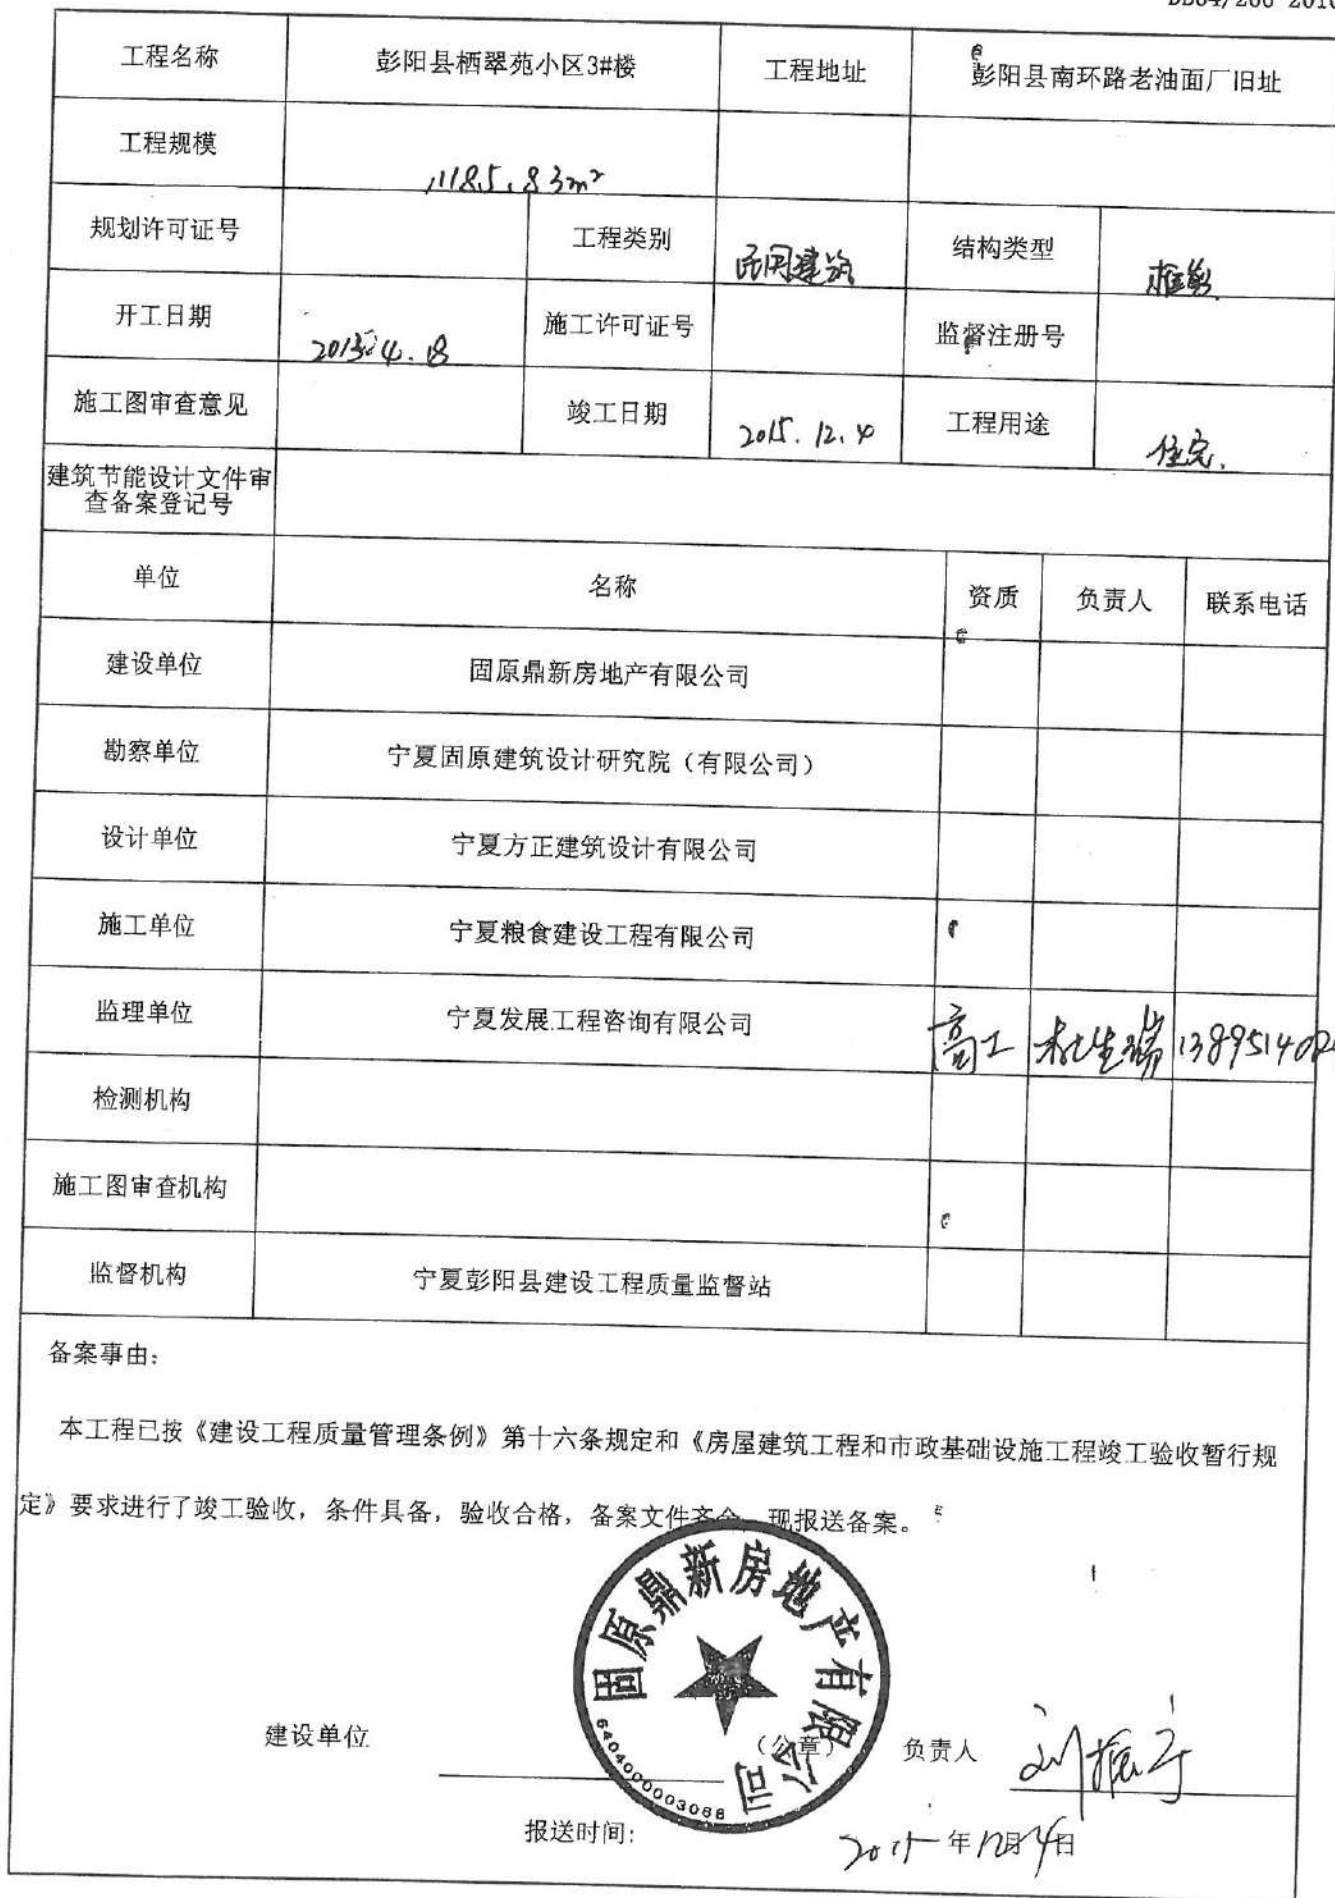 工程名称 彭阳县栖翠苑小区3#楼 工程地址 彭阳县南环路老油面厂旧址
工程规模 11185.83m²
规划许可证号 工程类别 民用建筑 结构类型 框剪
开工日期 2013.4.18 施工许可证号 监督注册号
施工图审查意见 竣工日期 2015.12.4 工程用途 住宅.
建筑节能设计文件审
查备案登记号
单位 名称 资质 负责人 联系电话
建设单位 固原鼎新房地产有限公司
勘察单位 宁夏固原建筑设计研究院（有限公司）
设计单位 宁夏方正建筑设计有限公司
施工单位 宁夏粮食建设工程有限公司
监理单位 宁夏发展工程咨询有限公司 高工
检测机构
施工图审查机构
监督机构 宁夏彭阳县建设工程质量监督站
备案事由：
本工程已按《建设工程质量管理条例》第十六条规定和《房屋建筑工程和市政基础设施工程竣工验收暂行规
定》要求进行了竣工验收，条件具备，验收合格，备案文件齐全，现报送备案。
固原鼎新房地产有限公司
6404000003068
建设单位 （公章） 负责人
报送时间： 2015年12月4日